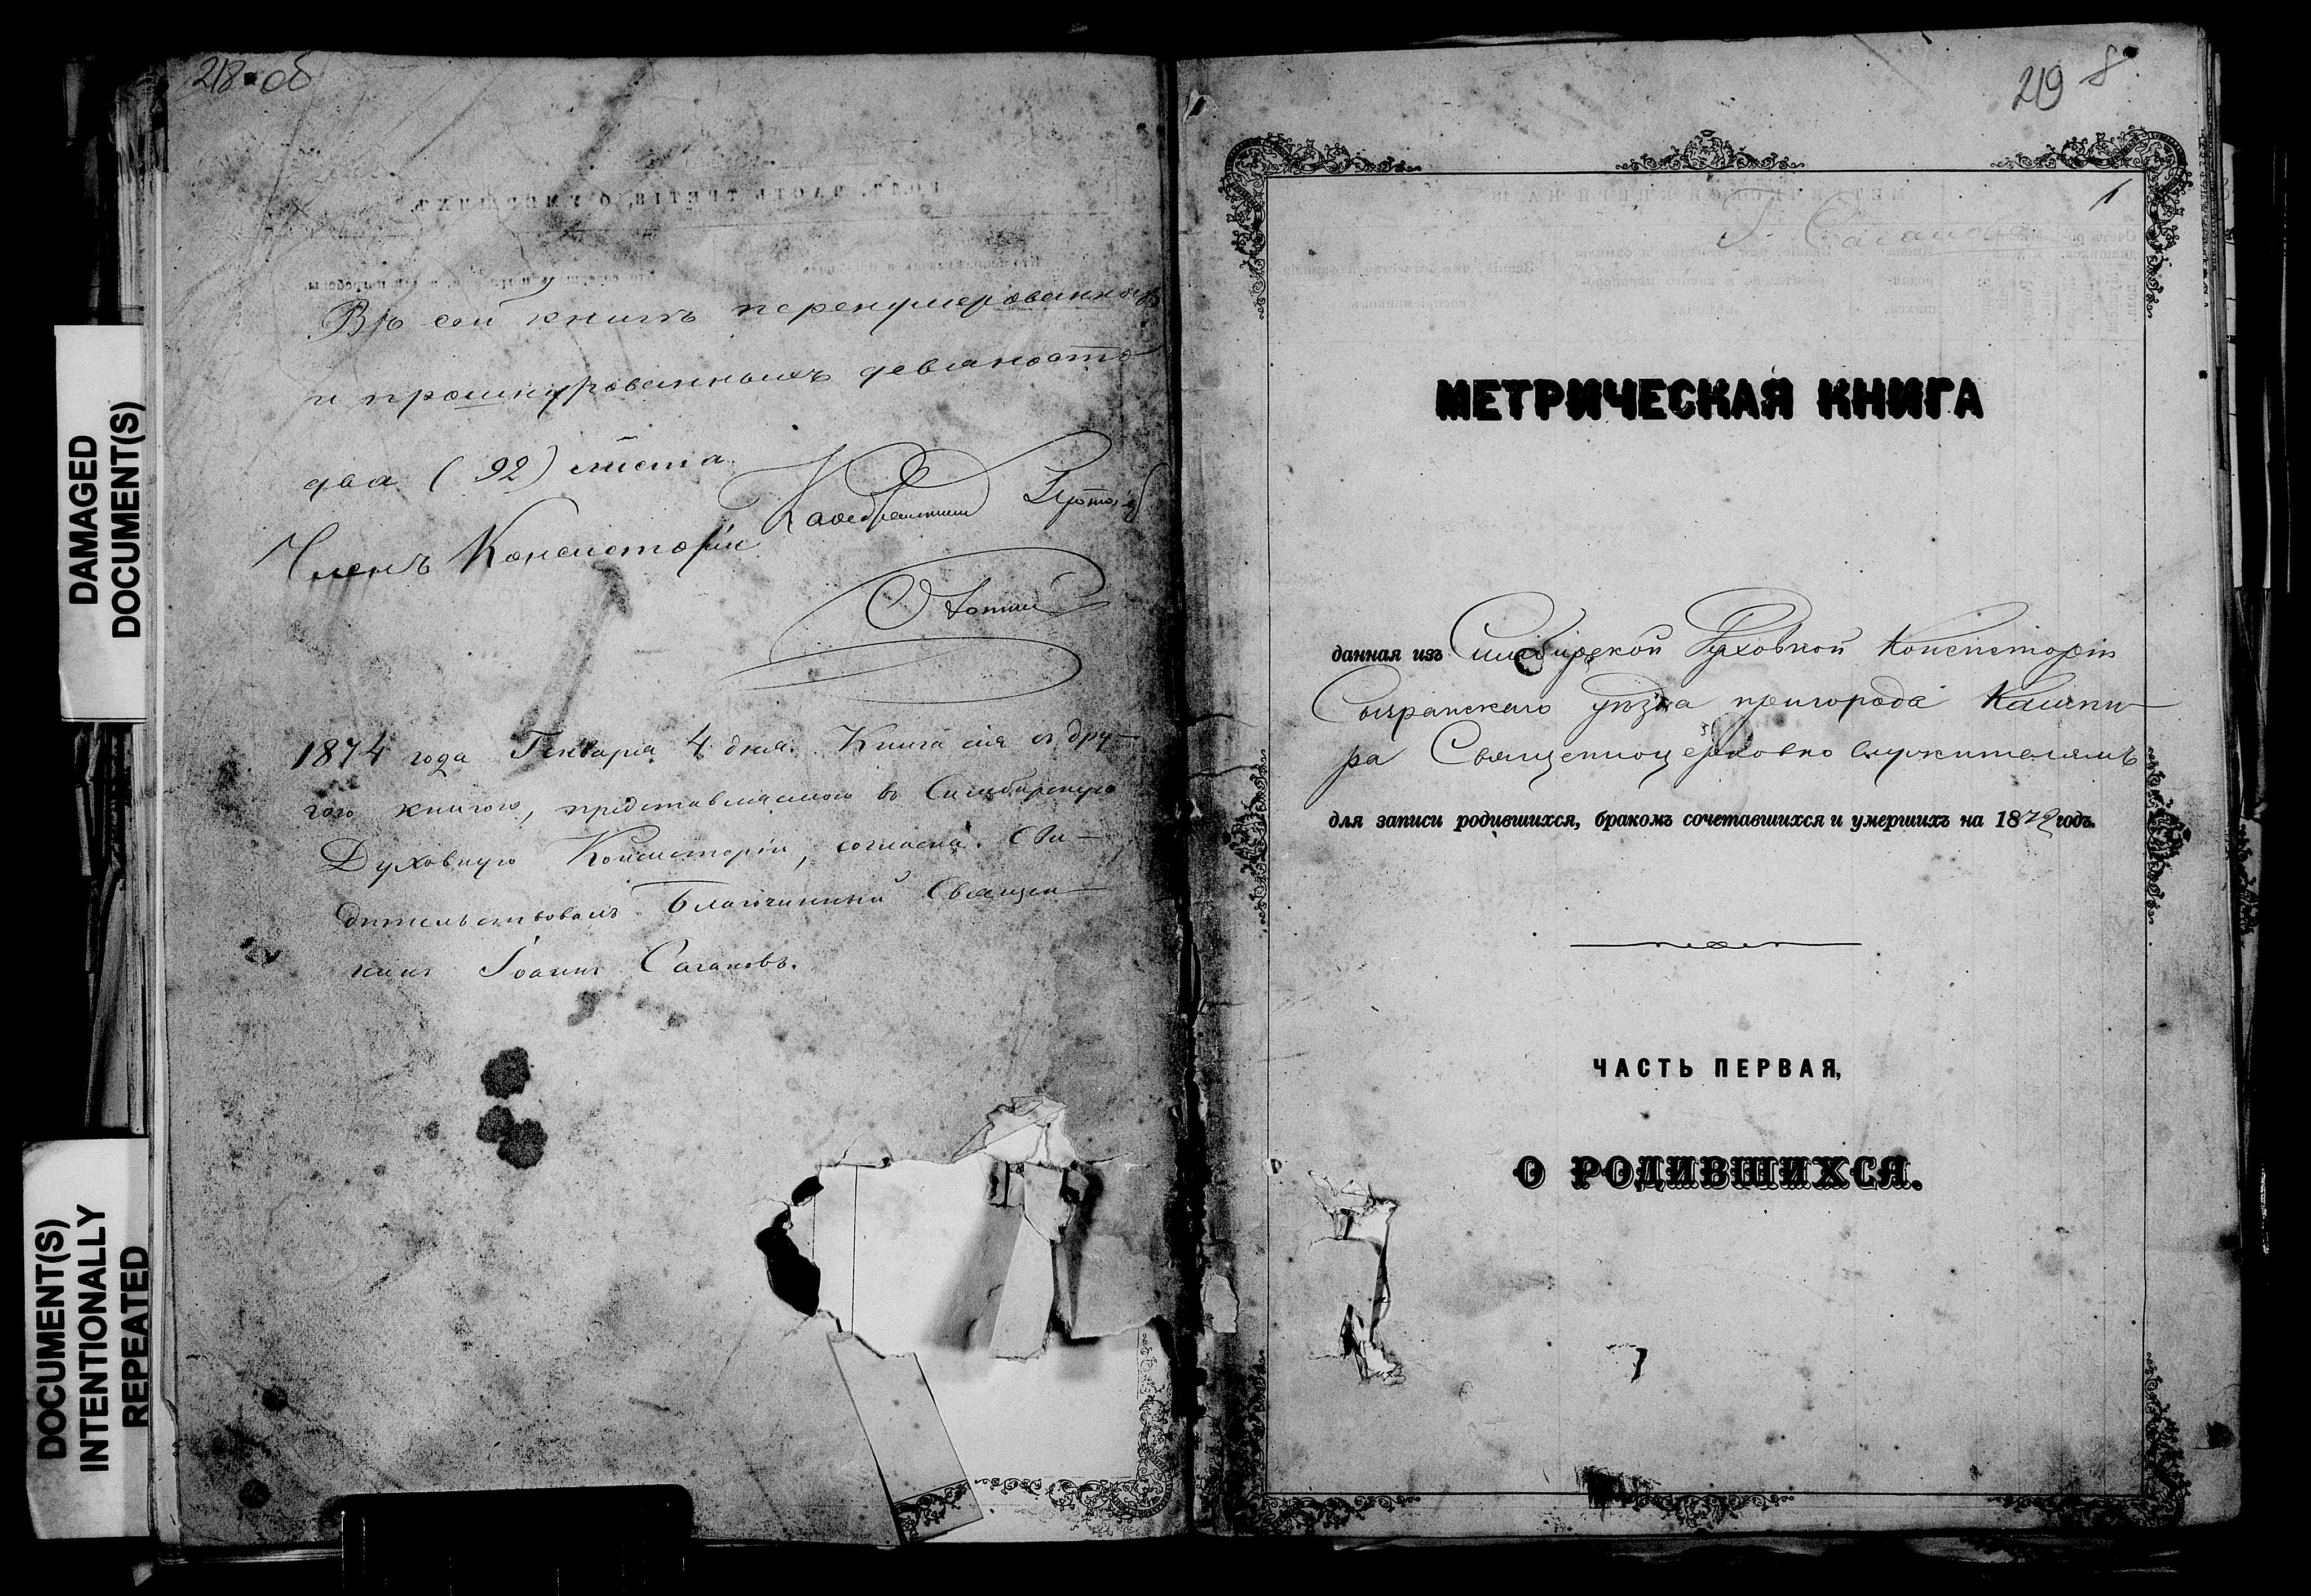 218 об
Въ сей книгѣ перенумерованныхъ
и прошнурованныхъ девяносто
два (92) листа.
Членъ Консисторіи Каѳедральный
1874 года Генваря 4 дня. Книга сія съ дру-
гою книгою, представляемою въ Симбирскую
Духовную Консисторію, согласна. Сви-
дѣтельствовалъ Благочинный Священ-
никъ Іоаннъ Сагановъ.
DAMAGED
DOCUMENT(S)
DOCUMENT(S)
INTENTIONALLY
REPEATED
219 8
1
МЕТРИЧЕСКАЯ КНИГА
данная изъ Симбирской Духовной Консисторіи
Сызранскаго уѣзда пригорода Кашпи-
ра Священноцерковно служителямъ
для записи родившихся, бракомъ сочетавшихся и умершихъ на 187 годъ.
ЧАСТЬ ПЕРВАЯ,
О РОДИВШИХСЯ.